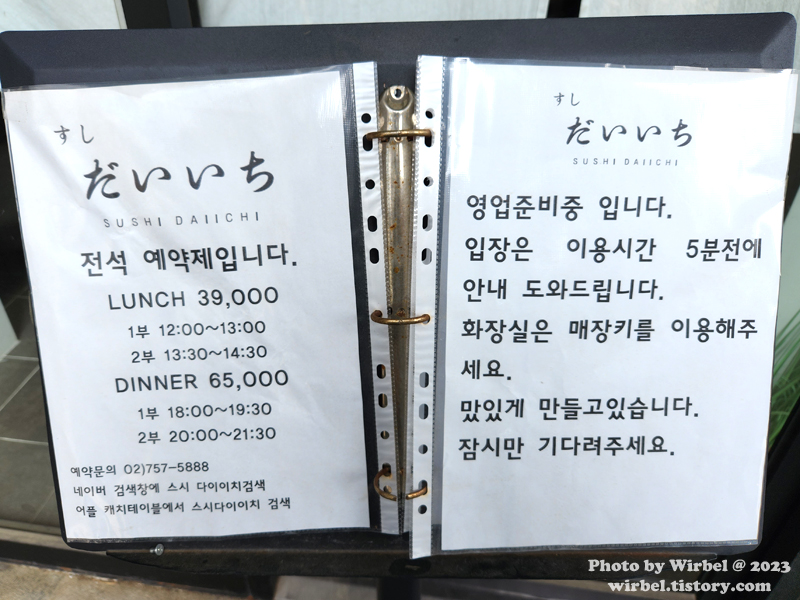 すし
だいいち
SUSHI DAIICHI
전석 예약제입니다.
LUNCH 39,000
1부 12:00~13:00
2부 13:30~14:30
DINNER 65,000
1부 18:00~19:30
2부 20:00~21:30
예약문의 02)757-5888
네이버 검색창에 스시 다이이치검색
어플 캐치테이블에서 스시다이이치 검색
すし
だいいち
SUSHI DAIICHI
영업준비중 입니다.
입장은 이용시간 5분전에
안내 도와드립니다.
화장실은 매장키를 이용해주
세요.
맜있게 만들고있습니다.
잠시만 기다려주세요.
Photo by Wirbel @ 2023
wirbel.tistory.com